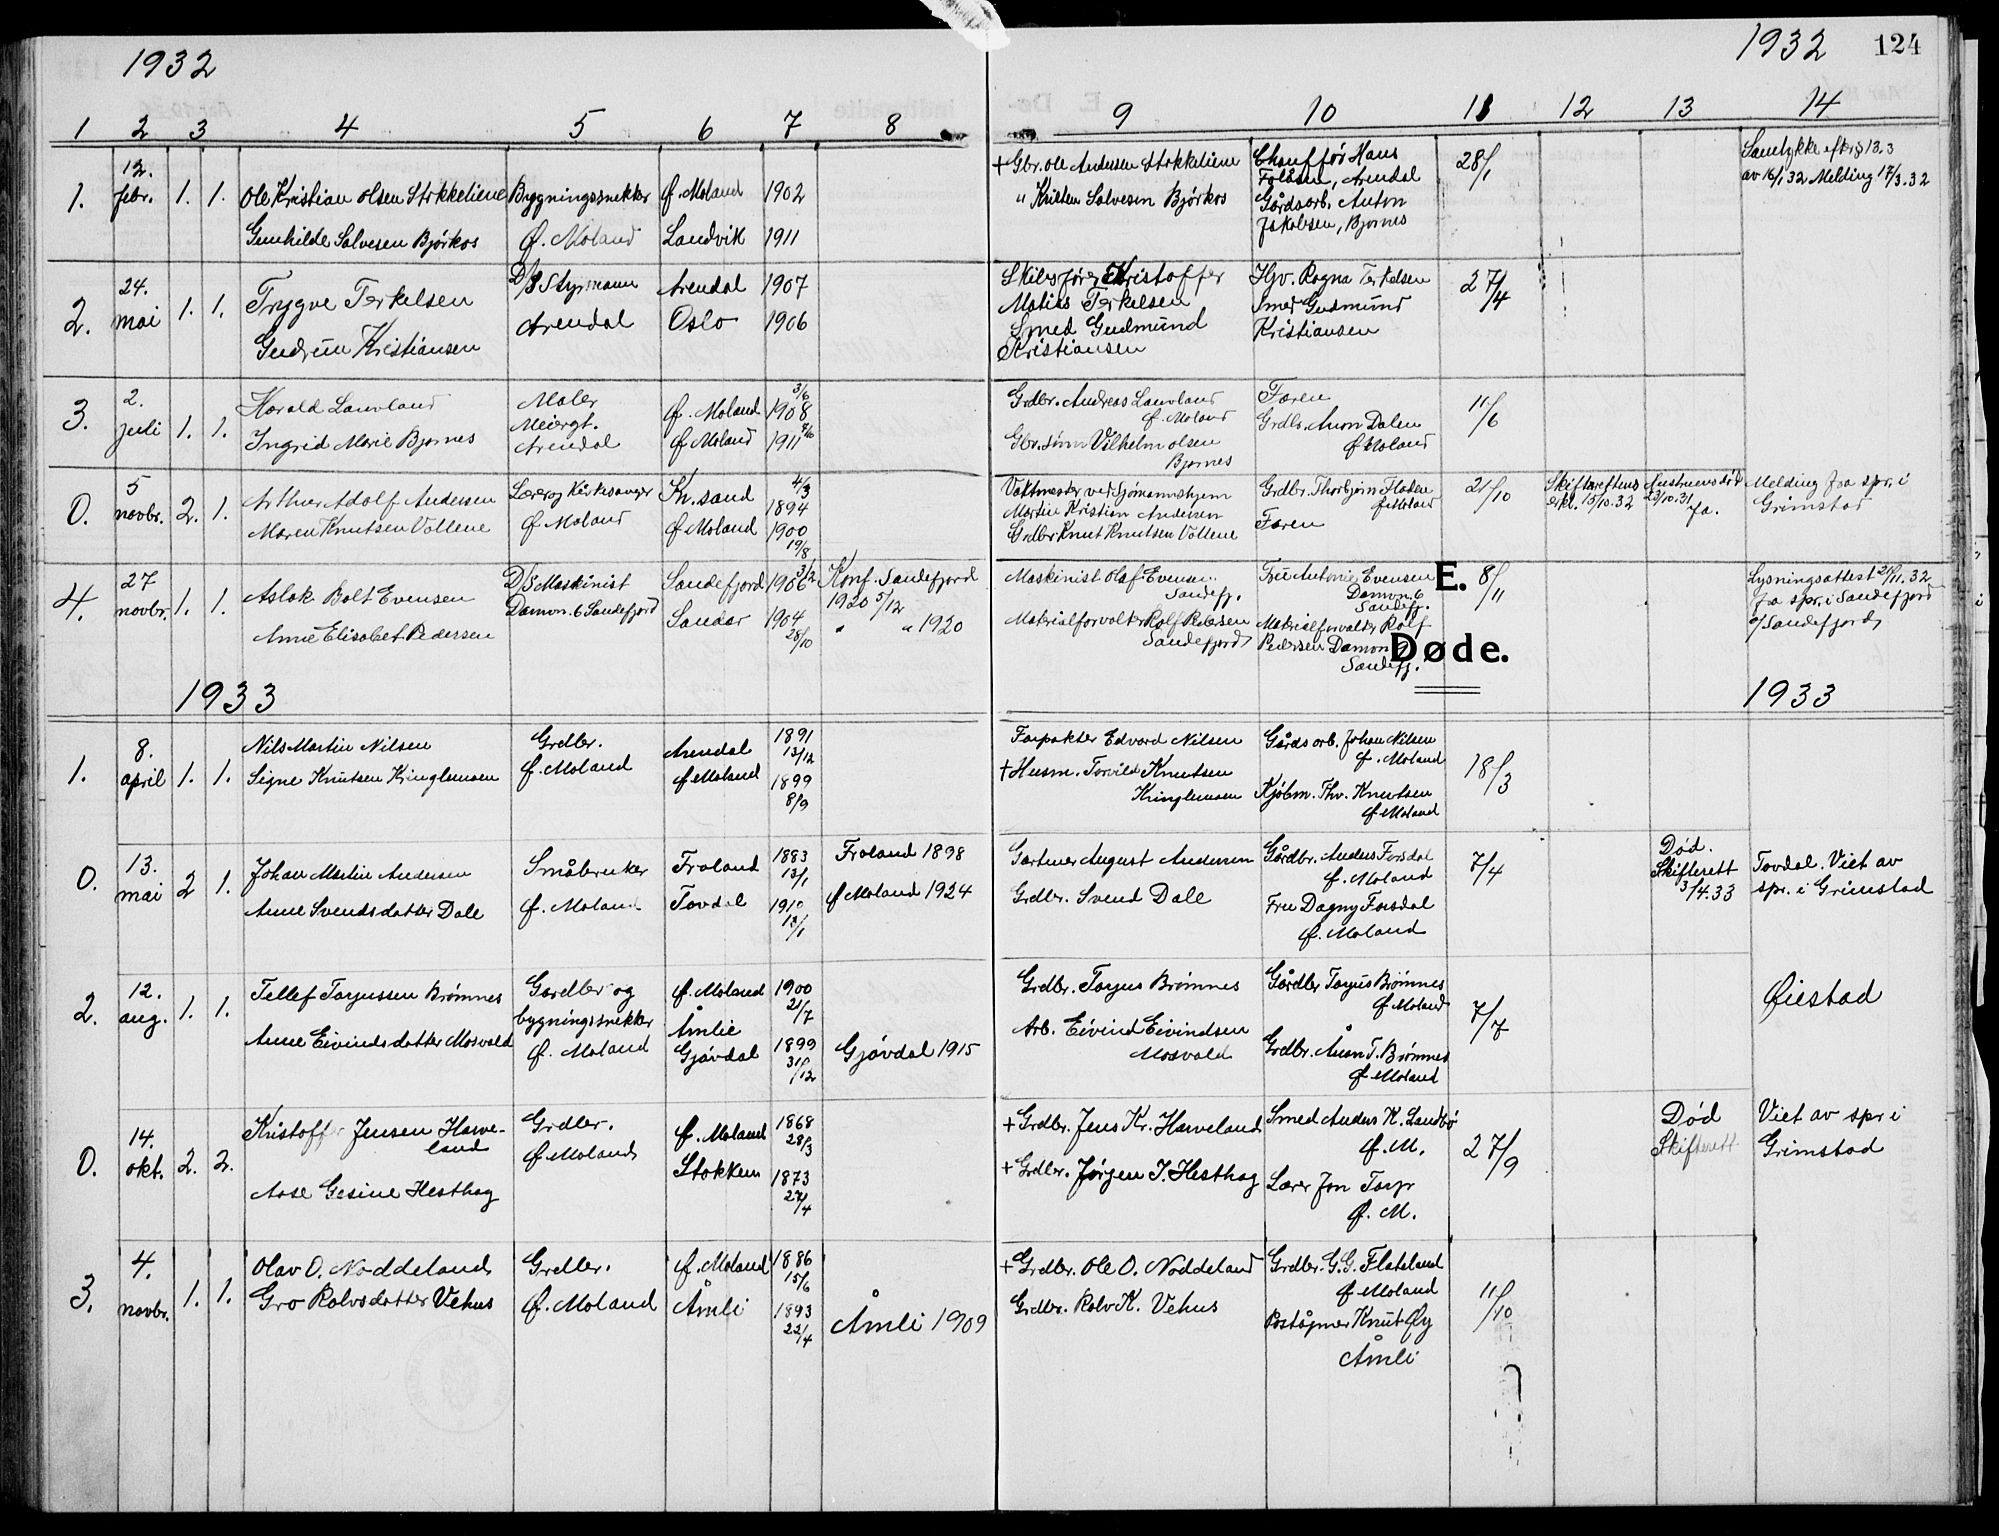 1932
1932 124
1 2 3 4 5 6 7 8 9 10 11 12 13 14
1. 12. febr. 1. 1.
Ole Kristian Olsen Stokkeliene Bygningssnekker Ø. Moland 1902
Gunhilde Salvesen Bjørkos Ø. Moland Landvik 1911
+ Gbr. Ole Andersen Stokkeliene
" Kristen Salvesen Bjørkos
Chauffør Hans
Foldsen, Arendal
Gårdsarb. Anton
Jakobsen, Bjornes
28/1
Samtykke efter § 13.3
av 16/1 32 Melding 17/3.32
2. 24. mai 1. 1.
Trygve Terkelsen D/S Styrmann Arendal 1907
Gudrun Kristiansen Arendal Oslo 1906
Skibsfører Kristoffer
Matias Terkelsen
Smed Gudmund
Kristiansen
Hgv. Ragna Terkelsen
Smed Gudmund
Kristiansen
27/4
3. 2. juli 1. 1.
Harald Lauvland Maler Ø. Moland 3/6 1908
Ingrid Marie Bjornes Meiergt. Arendal Ø. Moland 1911
Grdbr. Andreas Lauvland
Ø. Moland
Gbr. sønn Vilhelm Olsen
Bjornes
Faren
Grdbr. Aanon Dalen
Ø. Moland
11/6
0. 5 novbr. 2. 1.
Arthur Adolf Andersen Lærer og Kirkesanger Kr. sand 4/3 1894
Maren Knutsen Vollene Ø. Moland Ø. Moland 1900 19/8
Vaktmester ved Sjømannshjem
Martin Kristian Andersen
Grdbr. Knut Knutsen Vollene
Grdbr. Thorbjørn Flaten
Ø. Moland
Faren
21/10
Skifterettens
erkl. 15/10.32
Hustruens død
23/10.31
Ja.
Melding fra spr. i
Grimstad
4. 27 novbr. 1. 1.
Aslak Bolt Evensen D/S Maskinist Sandefjord 1906 3/2 Konf. Sandefjord
1920 5/12
Anne Elisabet Pedersen Damon. 6 Sandefjord Sandar 1904 28/10 " " 1920
Maskinist Olaf Evensen
Sandefj.
Materialforvalter Rolf Pedersen
Sandefjord
Fru Antonie Evensen
Damon. 6
Sandefj.
Materialforvalter Rolf
Pedersen Damon
Sandefj.
8/11
Lysningsattest 21/11.32
fra spr. i Sandefjord
Sandefjord
E.
Døde.
1933
1933
1. 8. april 1. 1.
Nils Martin Nilsen Grdbr. Arendal 1891 13/12
Signe Knutsen Kringlemoen Ø. Moland Ø. Moland 1899 8/9
Forpakter Edvard Nilsen
+ Husm. Torvild Knutsen
Kringlemoen
Gårdsarb. Johan Nilsen
Ø. Moland
Kjøbm. Thv. Knutsen
Ø. Moland
18/3
0. 13. mai 2 1.
Johan Martin Andersen Småbruker Froland 1883 13/1 Froland 1898
Anne Svendsdatter Dale Ø. Moland Tovdal 1910 13/1 Ø. Moland 1924
Gartner August Andersen
Grdbr. Svend Dale
Gårdbr. Anders Forsdal
Ø. Moland
Fru Dagny Forsdal
Ø. Moland
7/4
Død.
Skifterett
3/4.33
Tovdal. Viet av
spr. i Grimstad
2. 12. aug. 1. 1.
Tellef Torjussen Brømnes Gardbr og bygningssnekker Ø. Moland 1900 21/7
Anne Eivindsdatter Mosvald Ø. Moland Åmlie Gjøvdal 1899 31/12 Gjøvdal 1915
Grdbr. Torjus Brømnes
Arb. Eivind Eivindsen
Mosvald
Gårdbr Torjus Brømnes
Ø. Moland
Grdbr. Ånon T. Brømnes
Ø. Moland
7/7
Øiestad
0. 14. okt. 2. 2.
Kristoffer Jensen Harveland Grdbr. Ø. Moland 1868 28/3
Aase Gesine Hesthag Ø. Moland Stokken 1873 27/4
+ Grdbr. Jens Kr. Harveland
+ Grdbr. Jørgen J. Hesthag
Smed Anders K. Landbø
Ø. M.
Lærer Jon Torjr
Ø. M.
27/9
Død
Skifterett
Viet av spr i
Grimstad
3. 4. novbr. 1. 1.
Olav O. Noddeland Grdbr. Ø. Moland 1886 15/6
Gro Rolvsdatter Vehus Ø. Moland Åmli 1893 22/4 Åmli 1909
+ Grdbr. Ole O. Noddeland
Grdbr. Rolv K. Vehus
Grdbr. G. G. Flateland
Ø. Moland
Poståpner Knut Øy
Åmli
11/10